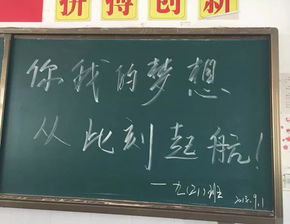 拼搏创新
你我的梦想
从此刻起航!
—九(21)班
2018.9.1